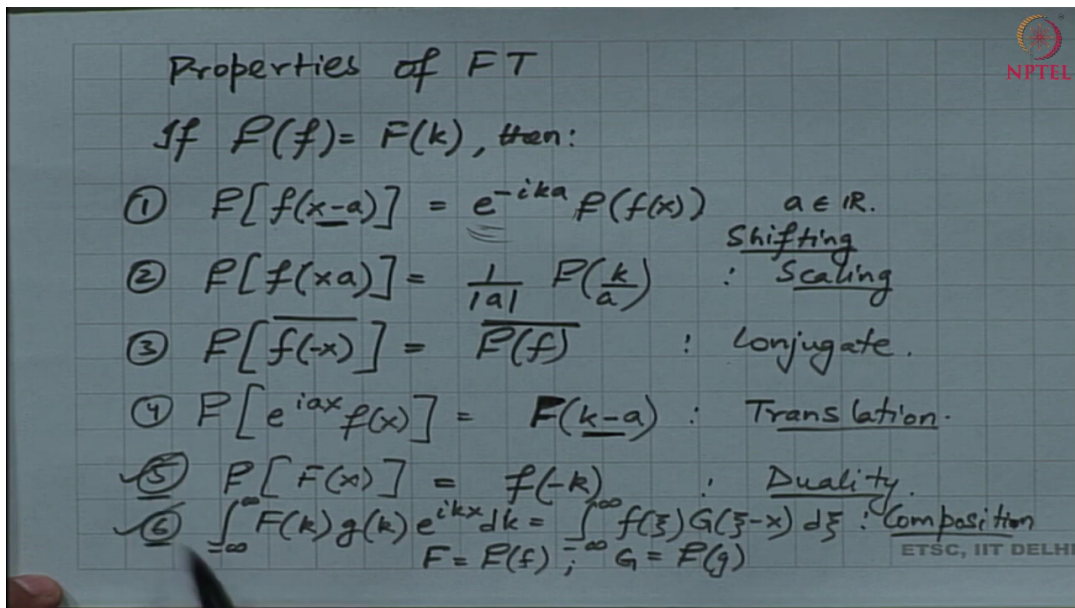 NPTEL
Properties of FT
If F(f) = F(k), then:
① F[f(x-a)] = e^{-ika} F(f(x)) a ∈ ℝ.
Shifting
② F[f(xa)] = 1/|a| F(k/a) : Scaling
③ F[\overline{f(-x)}] = \overline{F(f)} : Conjugate.
④ F[e^{iax} f(x)] = F(k-a) : Translation.
⑤ F[F(x)] = f(-k) : Duality.
⑥ ∫_{-∞}^{∞} F(k) g(k) e^{ikx} dk = ∫_{-∞}^{∞} f(ξ) G(ξ-x) dξ : Composition
F = F(f) ; G = F(g)
ETSC, IIT DELHI